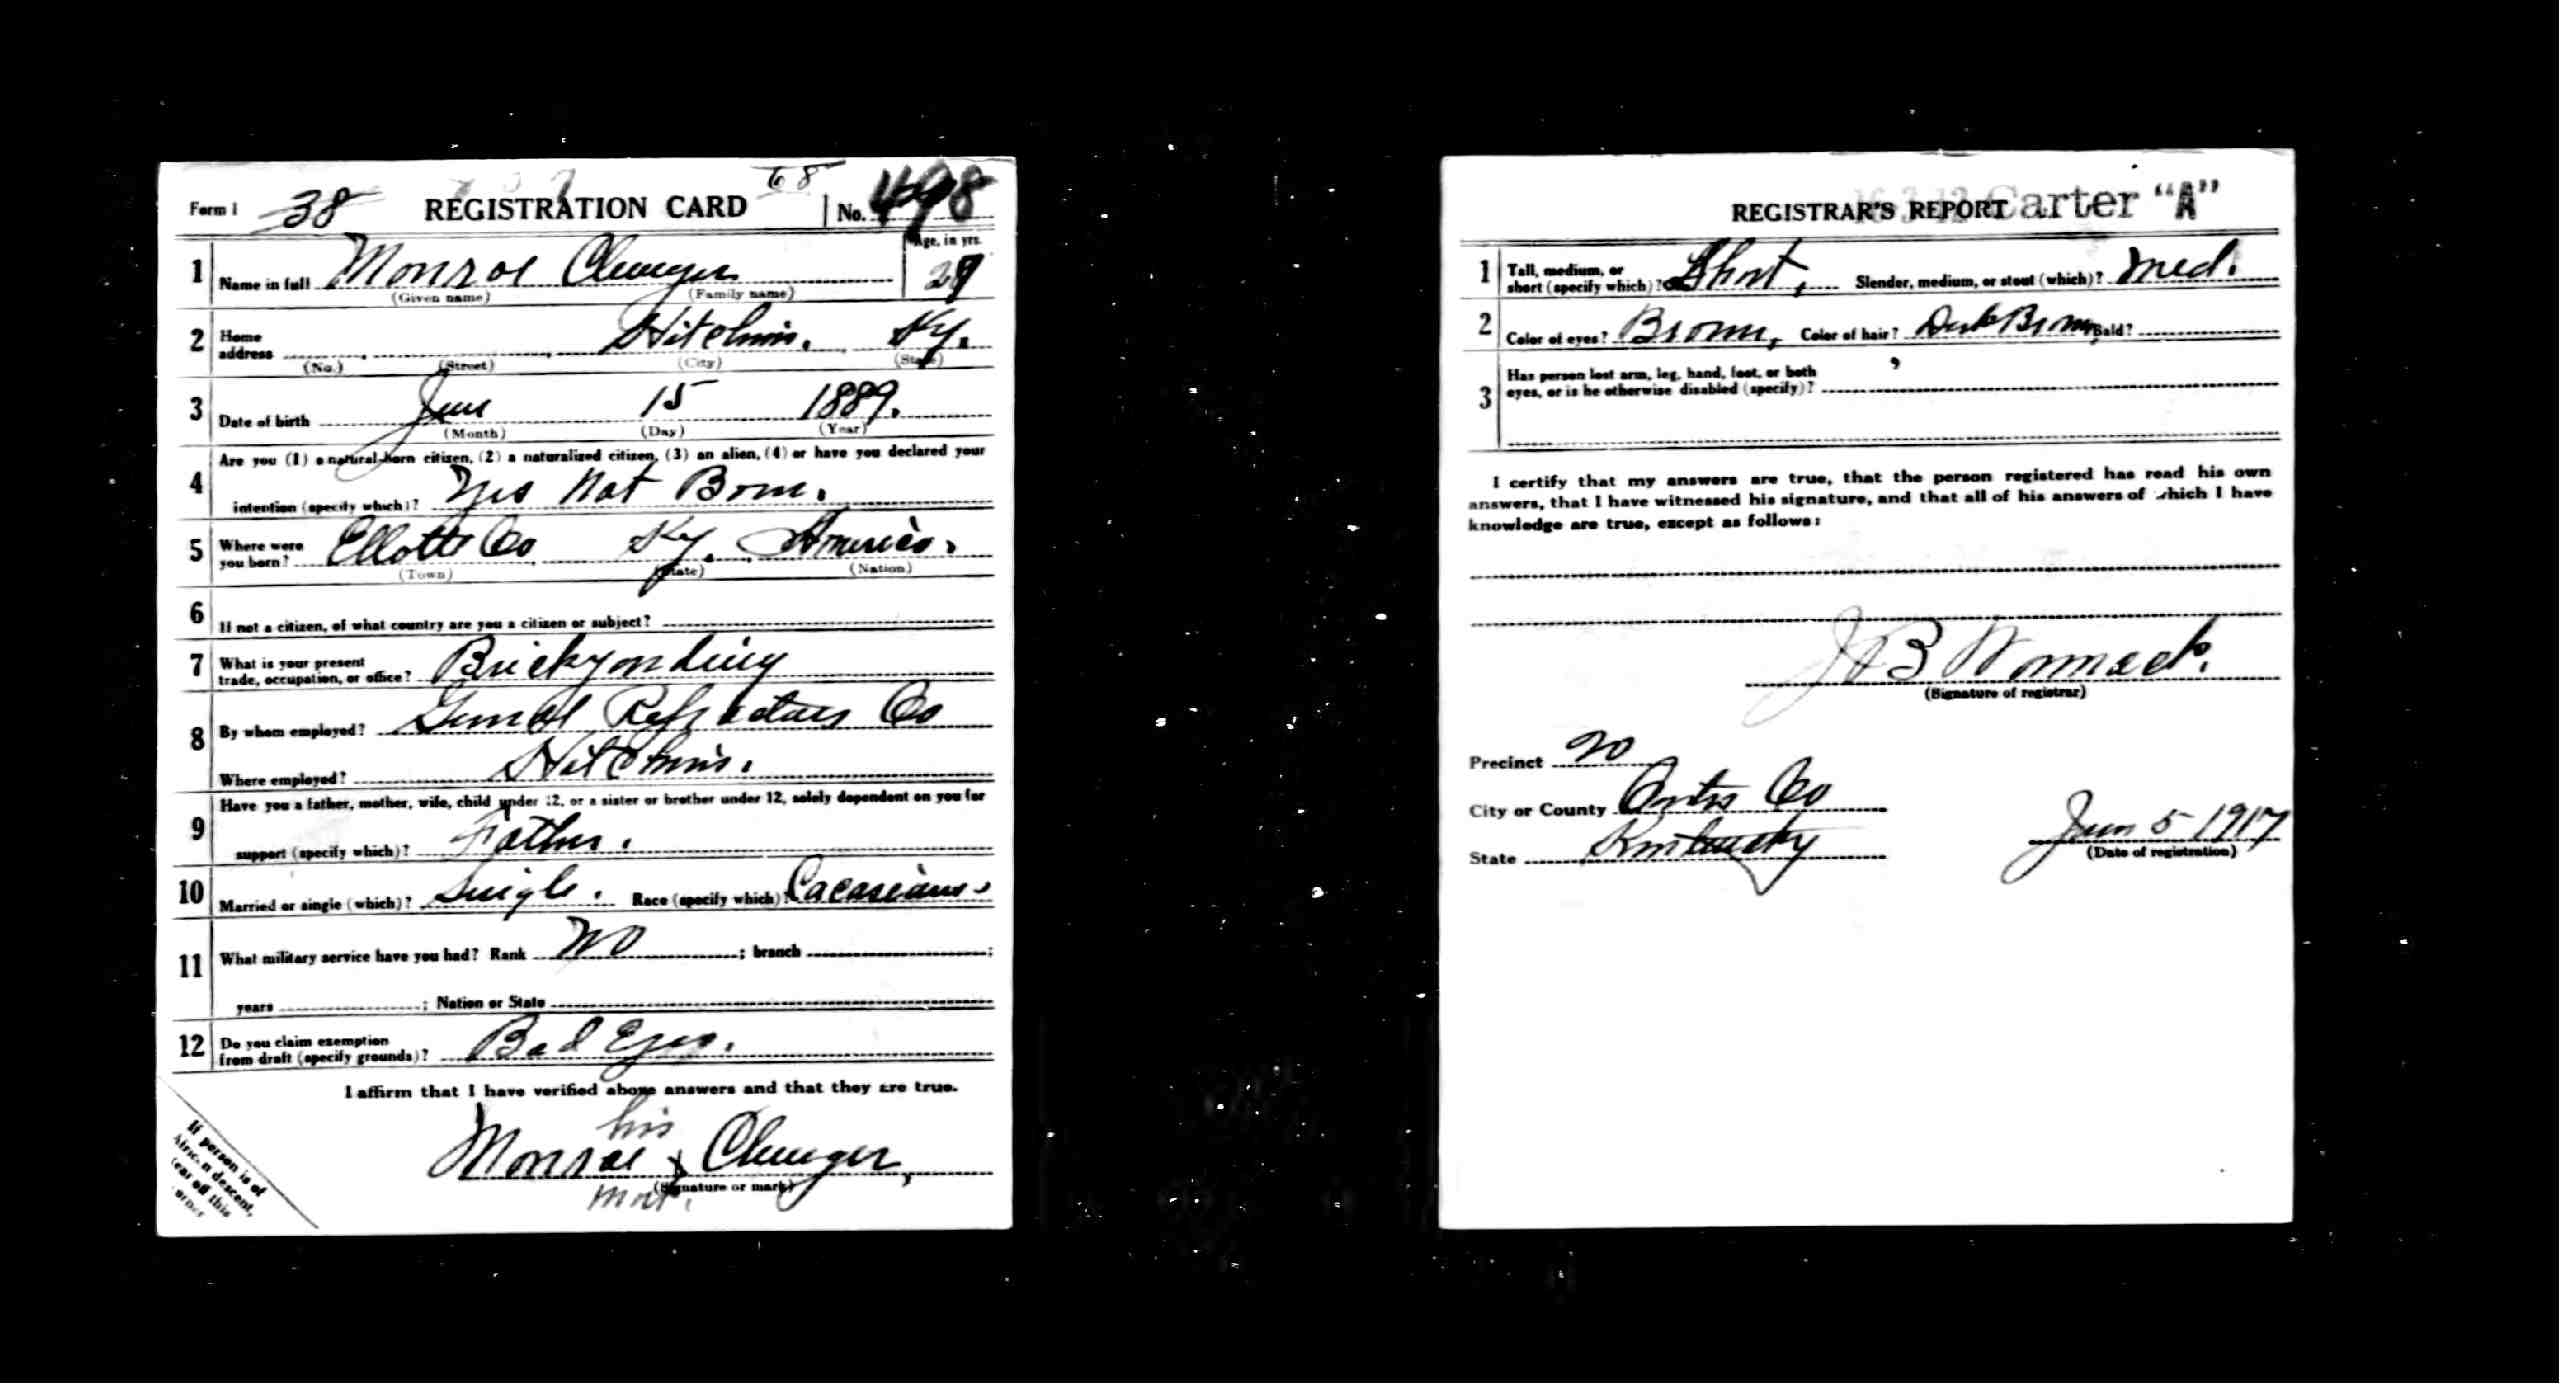 Form 1 38 REGISTRATION CARD 68 No. 498
1 Name in full Monroe Clevenger Age, in yrs.
(Given name) (Family name)
2 Home address Hitchins. Ky.
(No.) (Street) (City) (State)
3 Date of birth June 15 1889.
(Month) (Day) (Year)
4 Are you (1) a natural-born citizen, (2) a naturalized citizen, (3) an alien, (4) or have you declared your
intention (specify which)? Yes Nat Born.
5 Where were you born? Ellotte Co Ky. America.
(Town) (State) (Nation)
6 If not a citizen, of what country are you a citizen or subject?
7 What is your present
trade, occupation, or office?
8 By whom employed? Refractories Co
Where employed? Hitchins.
9 Have you a father, mother, wife, child under 12, or a sister or brother under 12, solely dependent on you for
support (specify which)? Father.
10 Married or single (which)? Single. Race (specify which)? Cacasians.
11 What military service have you had? Rank No ; branch ;
years ; Nation or State
12 Do you claim exemption
from draft (specify grounds)? Bad Eyes.
I affirm that I have verified above answers and that they are true.
his
Monroe x
(Signature or mark)
mark.
If person is of
African descent,
tear off this
corner
REGISTRAR'S REPORT Carter "A"
1 Tall, medium, or
short (specify which)? Short, Slender, medium, or stout (which)? Med.
2 Color of eyes? Brown, Color of hair? Dark Brown, Bald?
3 Has person lost arm, leg, hand, foot, or both
eyes, or is he otherwise disabled (specify)?
I certify that my answers are true, that the person registered has read his own
answers, that I have witnessed his signature, and that all of his answers of which I have
knowledge are true, except as follows:
J B Womack.
(Signature of registrar)
Precinct 20
City or County Carter Co
State Kentucky
Jun 5 1917
(Date of registration)